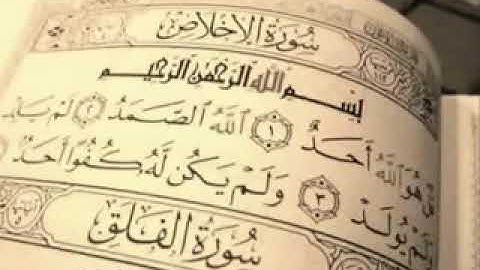 سُورَةُ الإِخْلَاصِ
بِسْمِ اللَّهِ الرَّحْمَٰنِ الرَّحِيمِ
هُوَ ٱللَّهُ أَحَدٌ ١ ٱللَّهُ ٱلصَّمَدُ ٢ لَمْ يَلِدْ
وَلَمْ يُولَدْ ٣ وَلَمْ يَكُن لَّهُۥ كُفُوًا أَحَدٌ
سُورَةُ الْفَلَقِ